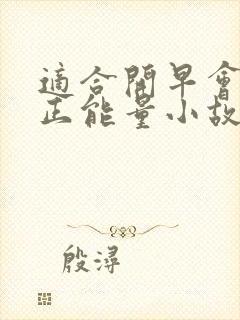 適合開早會
正能量小故
殷潯